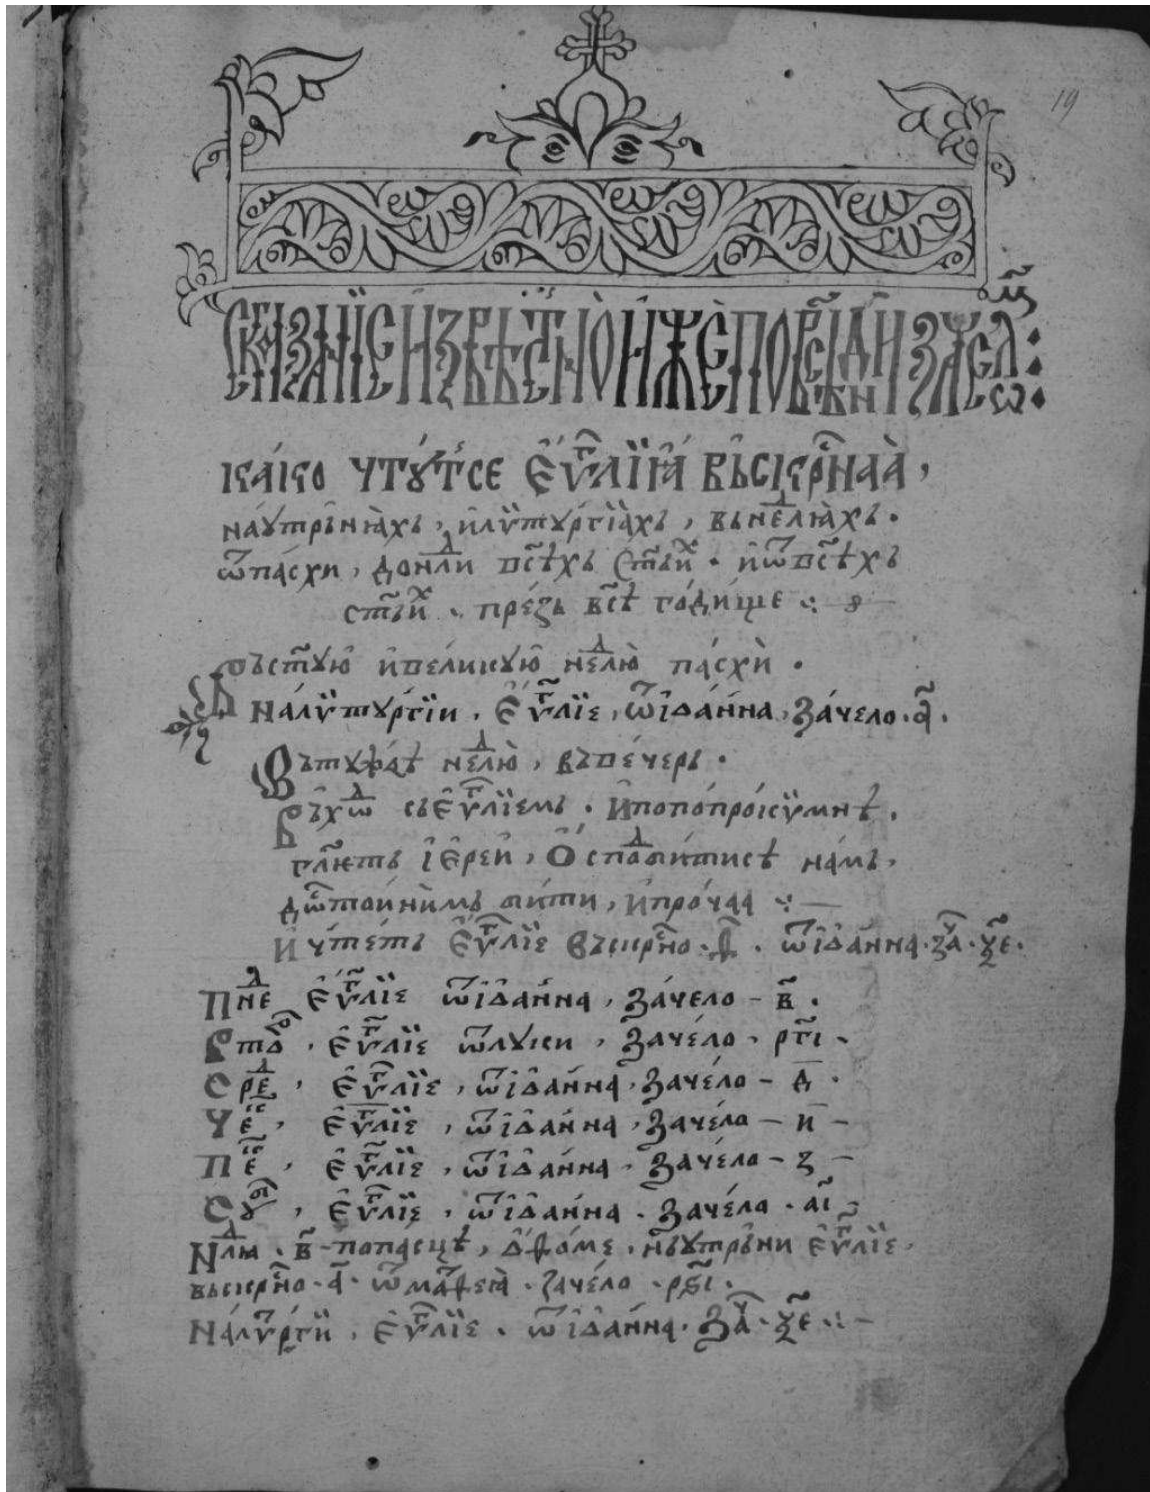 19
Сказанїе извѣстно иже по всѧ дни
како чтꙋтсе еѵⷢ҇лїꙗ въскрⷭ҇наа,
на ꙋтрънꙗхь, и лѵтꙋргїахь, вь неⷣлꙗхь.
ѿ пасхи, до неⷣли всѣхь ст҃ыиⷯ. и ѿ всѣхь
ст҃ыиⷯ. презь всѣ годище
ст҃ꙋю и великꙋю неⷣлю пасхи.
На лѵтꙋргїи, еѵⷢ҇лїе, ѿ іѡанна, зачело. а҃.
Въ тꙋжⷣе неⷣлю, въ вечерь.
Въхѡⷣ сь еѵⷢ҇лїемь. и по прокѵмнѣ,
гл҃еть іерей, О сподобитисѣ намь,
и прочаа
И чтеть еѵⷢ҇лїе въскрⷭ҇но. ѿ іѡанна. заⷱ. ѯ҃е.
Пнеⷣ еѵⷢ҇лїе ѿ іѡанна, зачело - в҃.
Втоⷬ, еѵⷢ҇лїе ѿ лꙋки, зачело. рг҃і.
Среⷣ, еѵⷢ҇лїе, ѿ іѡанна, зачело - д҃.
Чеⷮ, еѵⷢ҇лїе, ѿ іѡанна, зачело - и҃ -
Пеⷮ, еѵⷢ҇лїе, ѿ іѡанна, зачело - з҃ -
Сꙋⷠ, еѵⷢ҇лїе, ѿ іѡанна. зачела. а҃і.
Нⷣлꙗ. в҃ - по пасцѣ, ѡ ѳоме, на ꙋтръни еѵⷢ҇лїе,
въскрⷭ҇но. а҃. ѿ маⷮѳеꙗ. зачело. рѕ҃і.
На лѵⷮргїи, еѵⷢ҇лїе. ѿ іѡанна. заⷱ. ѯ҃е.